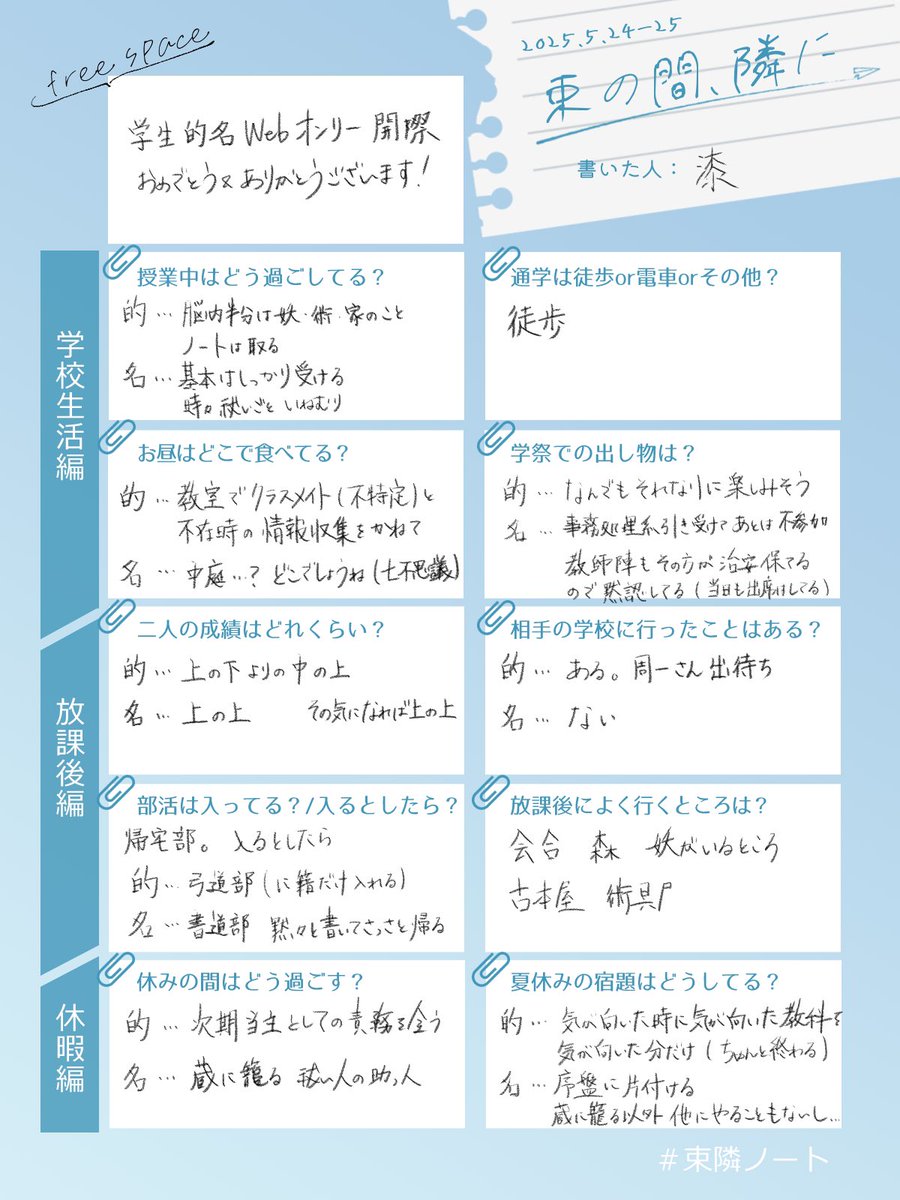 free space
学生的名Webオンリー開際
おめでとう&ありがとうございます!
2025.5.24-25
束の間、隣に
書いた人: 漆
学校生活編
授業中はどう過ごしてる?
的…脳内半分は妖・術・家のこと
ノートは取る
名…基本はしっかり受ける
時々祓いごと いねむり
通学は徒歩or電車orその他?
徒歩
お昼はどこで食べてる?
的…教室でクラスメイト(不特定)と
不在時の情報収集をかねて
名…中庭…?どこでしょうね(七不思議)
学祭での出し物は?
的…なんでもそれなりに楽しみそう
名…事務処理系引き受けてあとは不参加
教師陣もその方が治安保てる
ので黙認してる(当日も出席はしてる)
放課後編
二人の成績はどれくらい?
的…上の下よりの中の上
名…上の上 その気になれば上の上
相手の学校に行ったことはある?
的…ある。周一さん出待ち
名…ない
部活は入ってる?/入るとしたら?
帰宅部。入るとしたら
的…弓道部(に籍だけ入れる)
名…書道部 黙々と書いてさっさと帰る
放課後によく行くところは?
会合 森 妖がいるところ
古本屋 術具戸
休暇編
休みの間はどう過ごす?
的…次期当主としての責務を全う
名…蔵に籠る 祓い人の助っ人
夏休みの宿題はどうしてる?
的…気が向いた時に気が向いた教科を
気が向いた分だけ(ちゃんと終わる)
名…序盤に片付ける
蔵に籠る以外他にやることもないし…
#束隣ノート